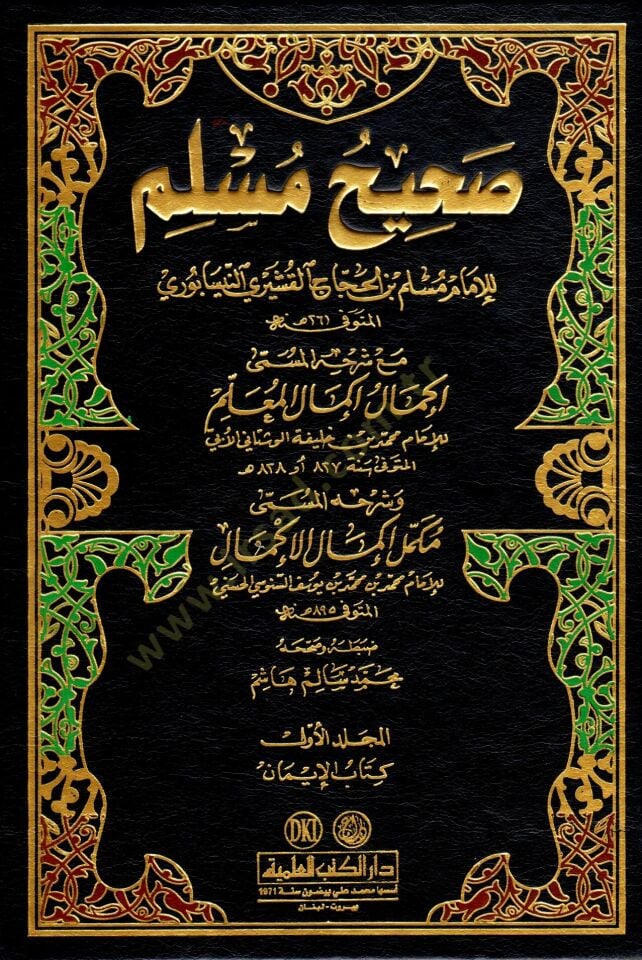 صَحِيحُ مُسْلِم
للإمَام مُسْلم بن الحَجّاج القُشَيْري النّيسَابُوري
المتوفى ٢٦١ هـ
مَعَ شرحِه المُسَمّى
إكمَالُ إكمَال المُعَلّم
للإمَام محمّد بن خليفة الوشتاني الأبّي
المتوفى سنة ٨٢٧ أو ٨٢٨ هـ
وَشرحِه المُسَمّى
مكَمّل إكمَال الإكمَال
للإمَام محمّد بن محمّد بن يوسف السنوسي الحسَني
المتوفى ٨٩٥ هـ
ضبَطهُ وصَحّحَهُ
محمّد سَالِم هَاشِم
المجَلد الأوّل
كِتَابُ الإيمَان
DKI
دار الكتب العلمية
أسسها محمد علي بيضون سنة 1971
بيروت - لبنان